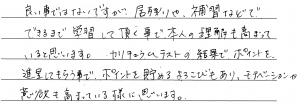 良い事ではないですが、居残りや、補習などで
できるまで学習して頂く事で本人の理解も高まって
いると思います。カリキュラムテストの結果でポイントを
進呈してもらう事で、ポイントを貯めるよろこびもあり、モチベーションや
意欲も高まっている様に思います。